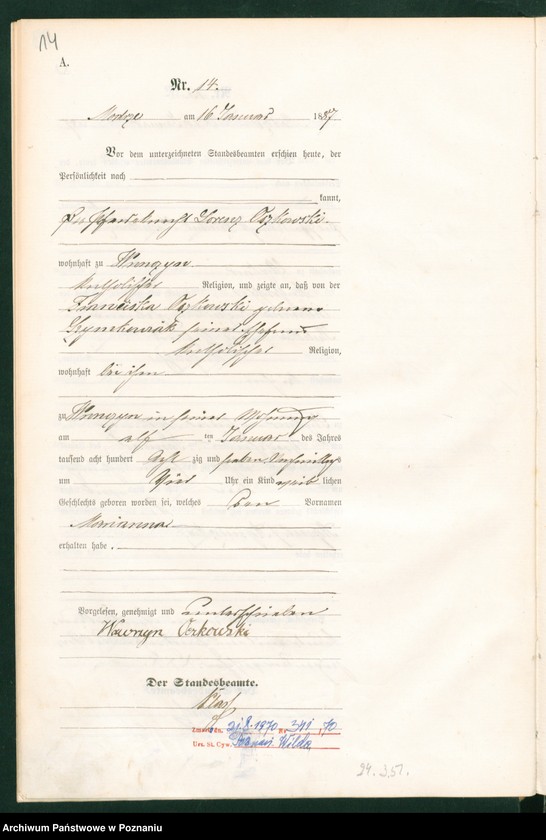 14
A.
Nr. 14.
Modze am 16 Januar 1887
Vor dem unterzeichneten Standesbeamten erschien heute, der
Persönlichkeit nach
kannt,
Lorenz
wohnhaft zu
katholischer Religion, und zeigte an, daß von der
Franciska geborene
Szymkowiak seiner Ehefrau
katholischer Religion,
wohnhaft bei ihm
zu in seiner Wohnung
am elf ten Januar des Jahres
tausend acht hundert acht zig und sieben Vormittags
um Uhr ein Kind weib lichen
Geschlechts geboren worden sei, welches den Vornamen
Marianna
erhalten habe.
Vorgelesen, genehmigt und unterschrieben
Wawrzyn
Der Standesbeamte.
Zmarł dn. 21.8.1970 Nr 341/70
Urz. St. Cyw. Poznań Wilda
24.3.51.
Archiwum Państwowe w Poznaniu